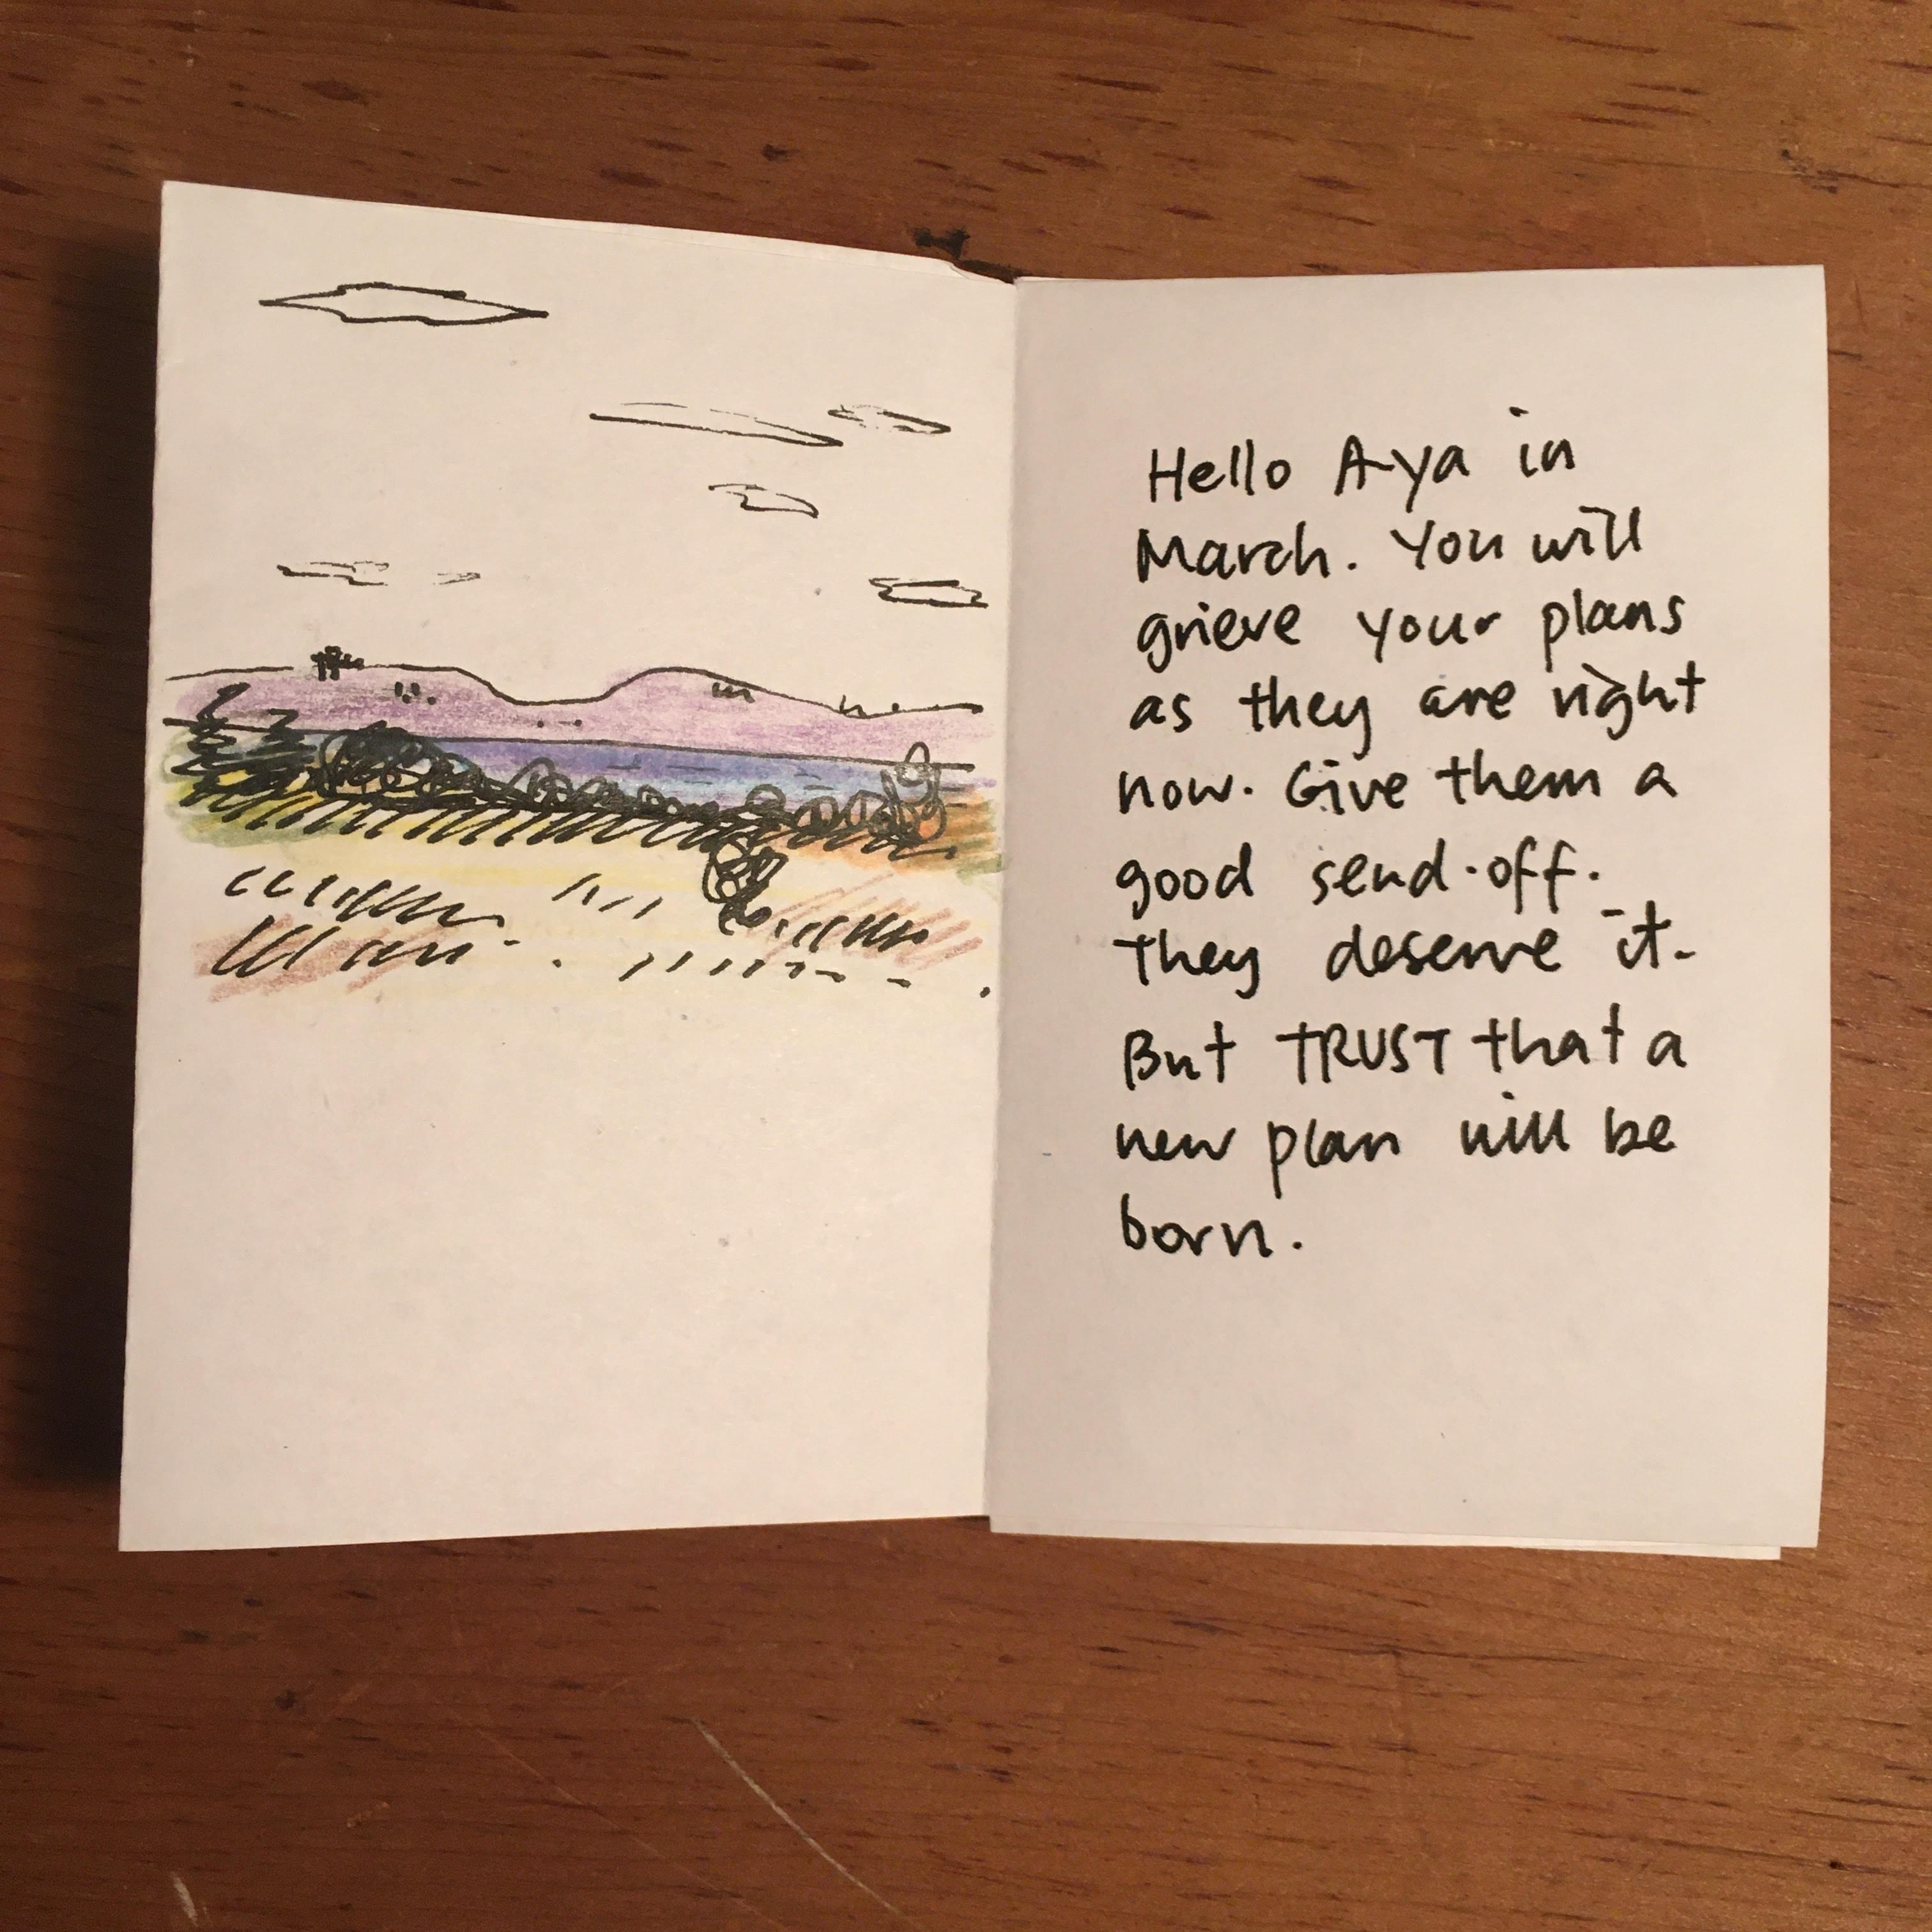 Hello A-ya in
March. You will
grieve your plans
as they are right
now. Give them a
good send-off.
They deserve it.
But TRUST that a
new plan will be
born.